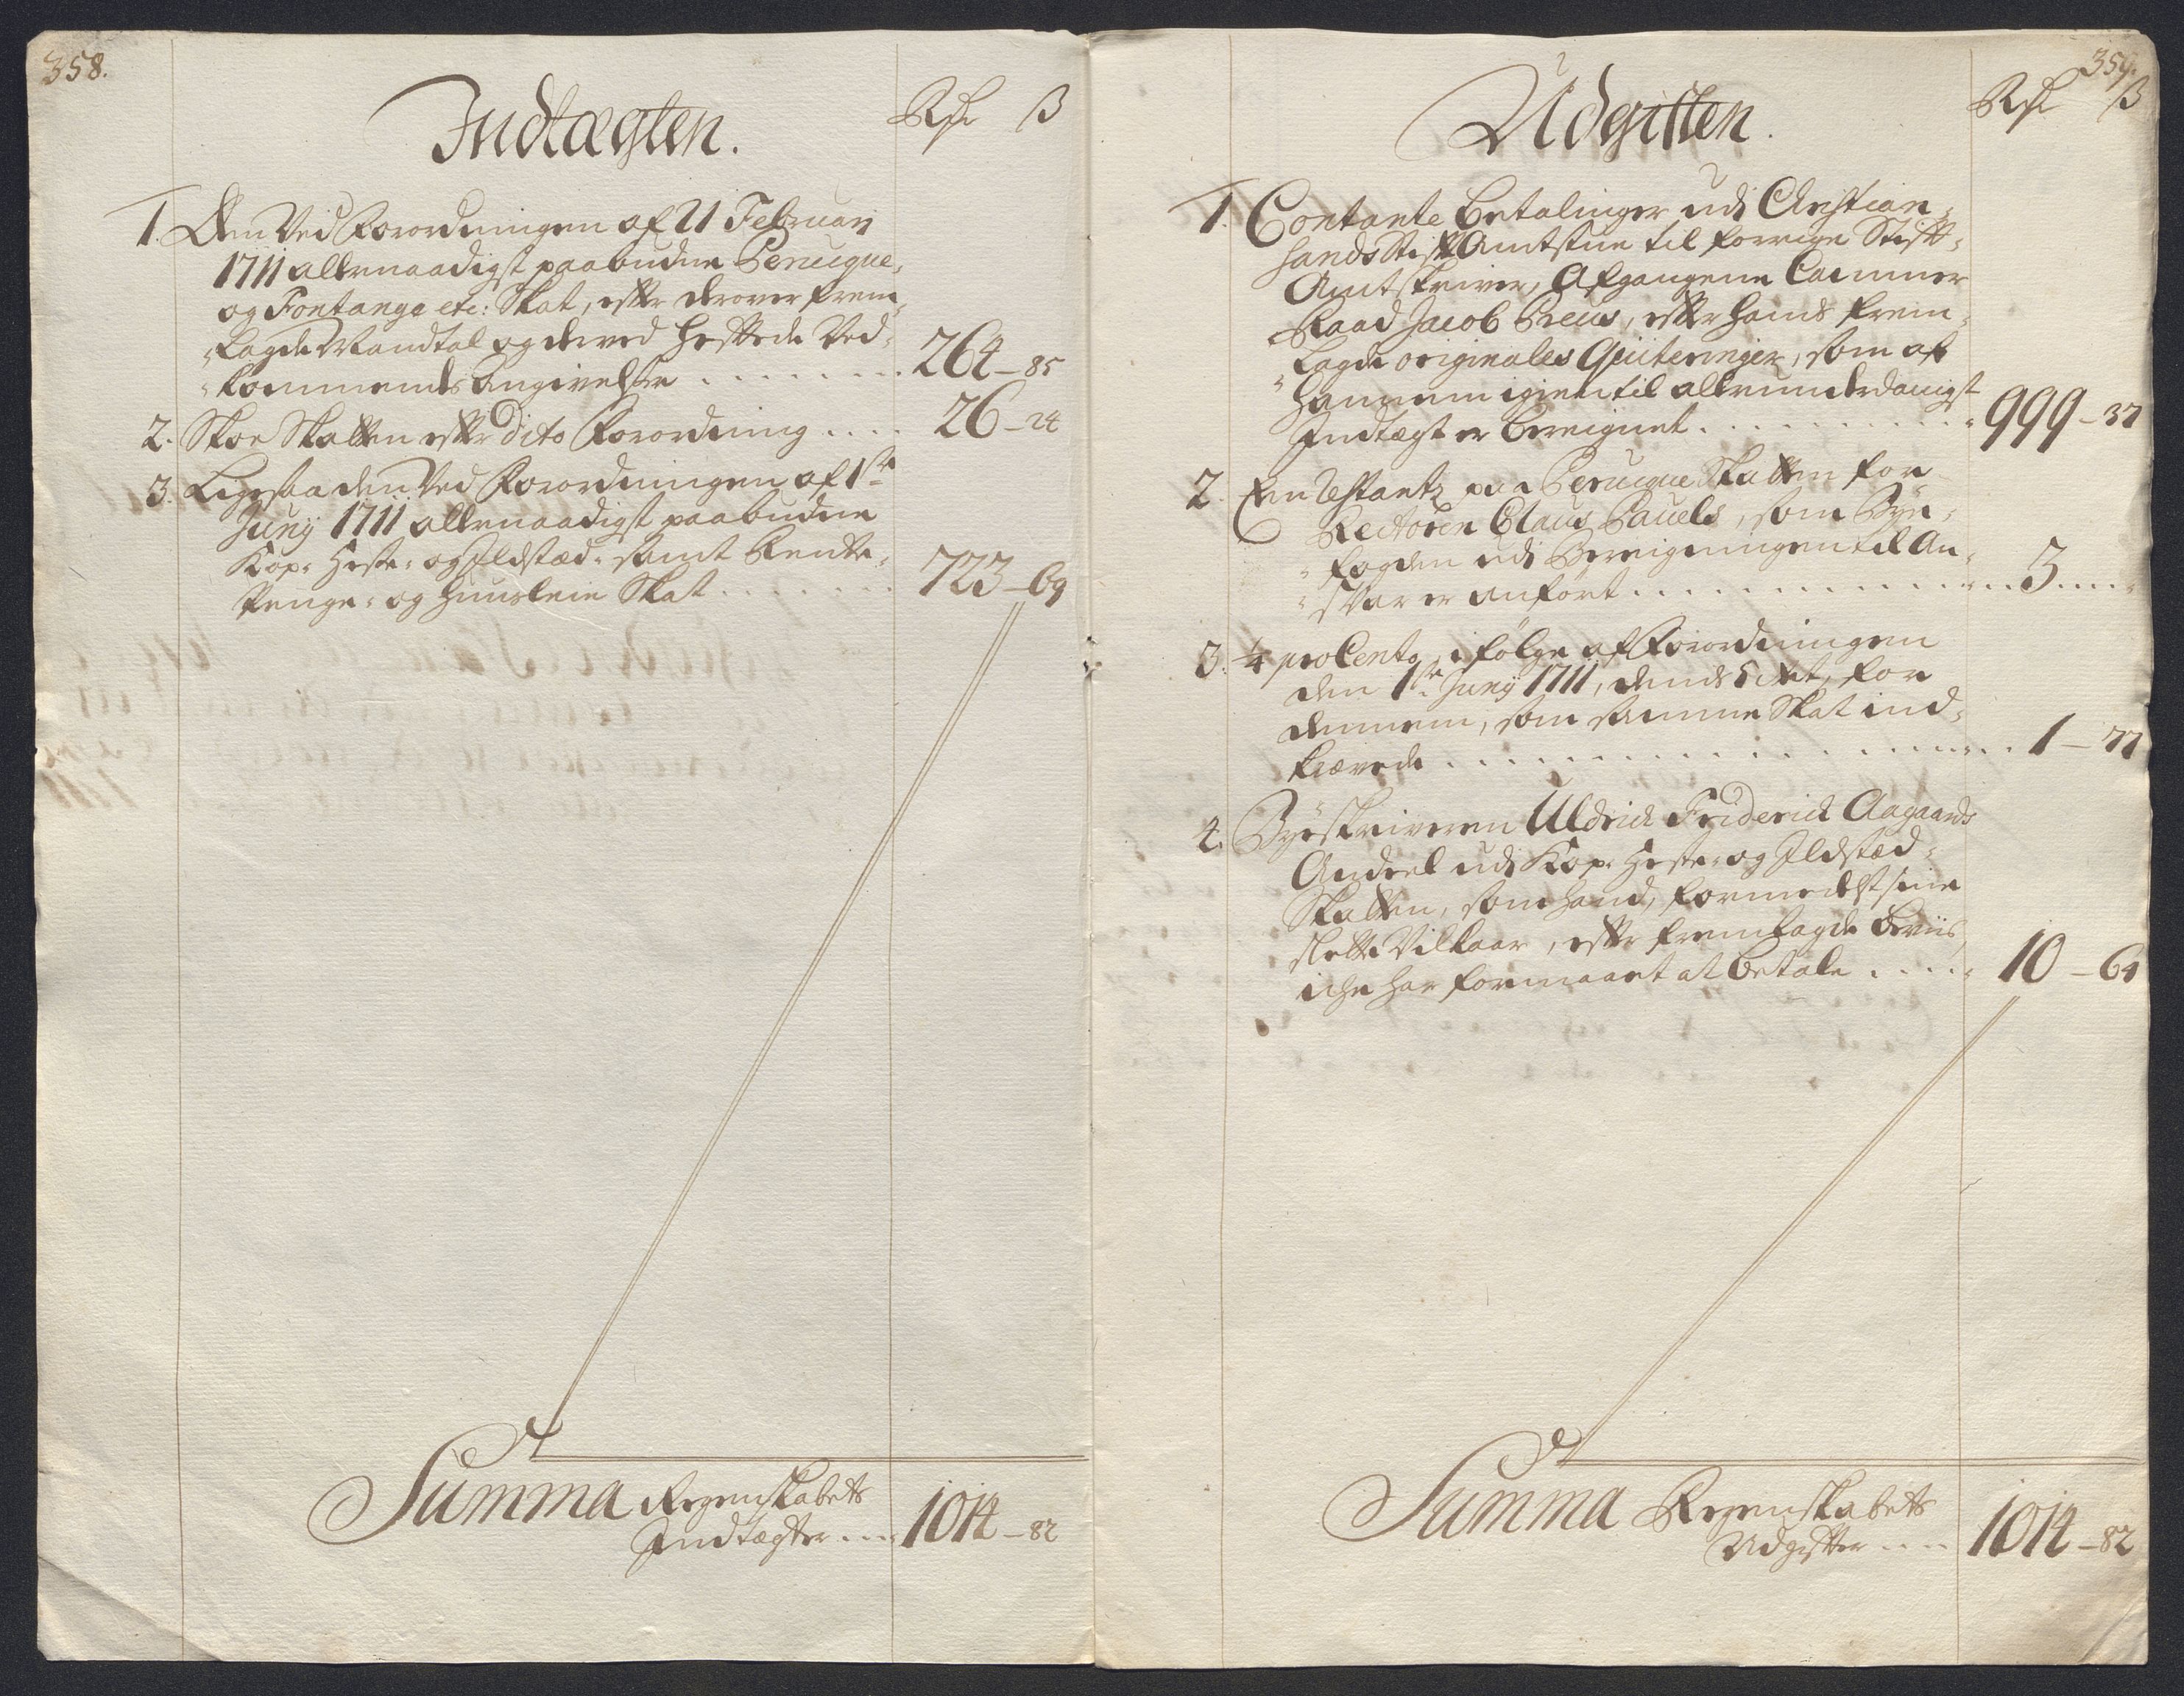 358.
Indtægten.
Rdr ß
1. Den Ved Forordningen af 21 Februarj
1711 allernaadigst paabudne Peruque,
og Fontange etc: Skat, efter derover frem-
lagde Mandtal og derved heftede Ved-
kommendes Angivelse . . . . . . . 264 - 85
2. Skoe Skatten efter dito Forordning . . . . 26 - 24
3. Ligesaa den Ved Forordningen af 1ste
Junij 1711 allernaadigst paabudne
Kop- Heste- og Ildstæd- samt Rente-
Penge- og Huusleie Skat . . . . . . . 723 - 69
Summa Regenskabets
Indtægter . . . 1014 - 82
359.
Udgiften.
Rdr ß
1. Contante Betalinger udj Christian-
sands Stift Amtstue til forrige Stift-
Amtskriver, Afgangene Cammer
Raad Jacob Preus, efter hands frem-
lagde originales Qviteringer, som af
hannem igien til allerunderdanigst
Indtægt er bereignet . . . . . . . . . . 999 - 37
2. En Restantz paa Peruque Skatten for
Rectoren Claus Pauels, som Bye-
fogden udj Bereigningen til An-
svar er anført . . . . . . . . . . . . . 3 . . . .
3. 1/4 pro Cento, i følge af Forordningen
den 1ste Junij 1711, dends 5 Art, for
dennem, som samme Skat ind-
krævede . . . . . . . . . . . . . 1 - 77
4. Byeskriveren Uldrich Friderich Aagaards
Andeel udj Kop- Heste- og Ildstæd-
Skatten, som hand, formedelst sine
slette Vilkaar, efter fremlagde Beviis,
iche har formaaet at betale . . . . . 10 - 64
Summa Regenskabets
Udgifter . . . . 1014 - 82